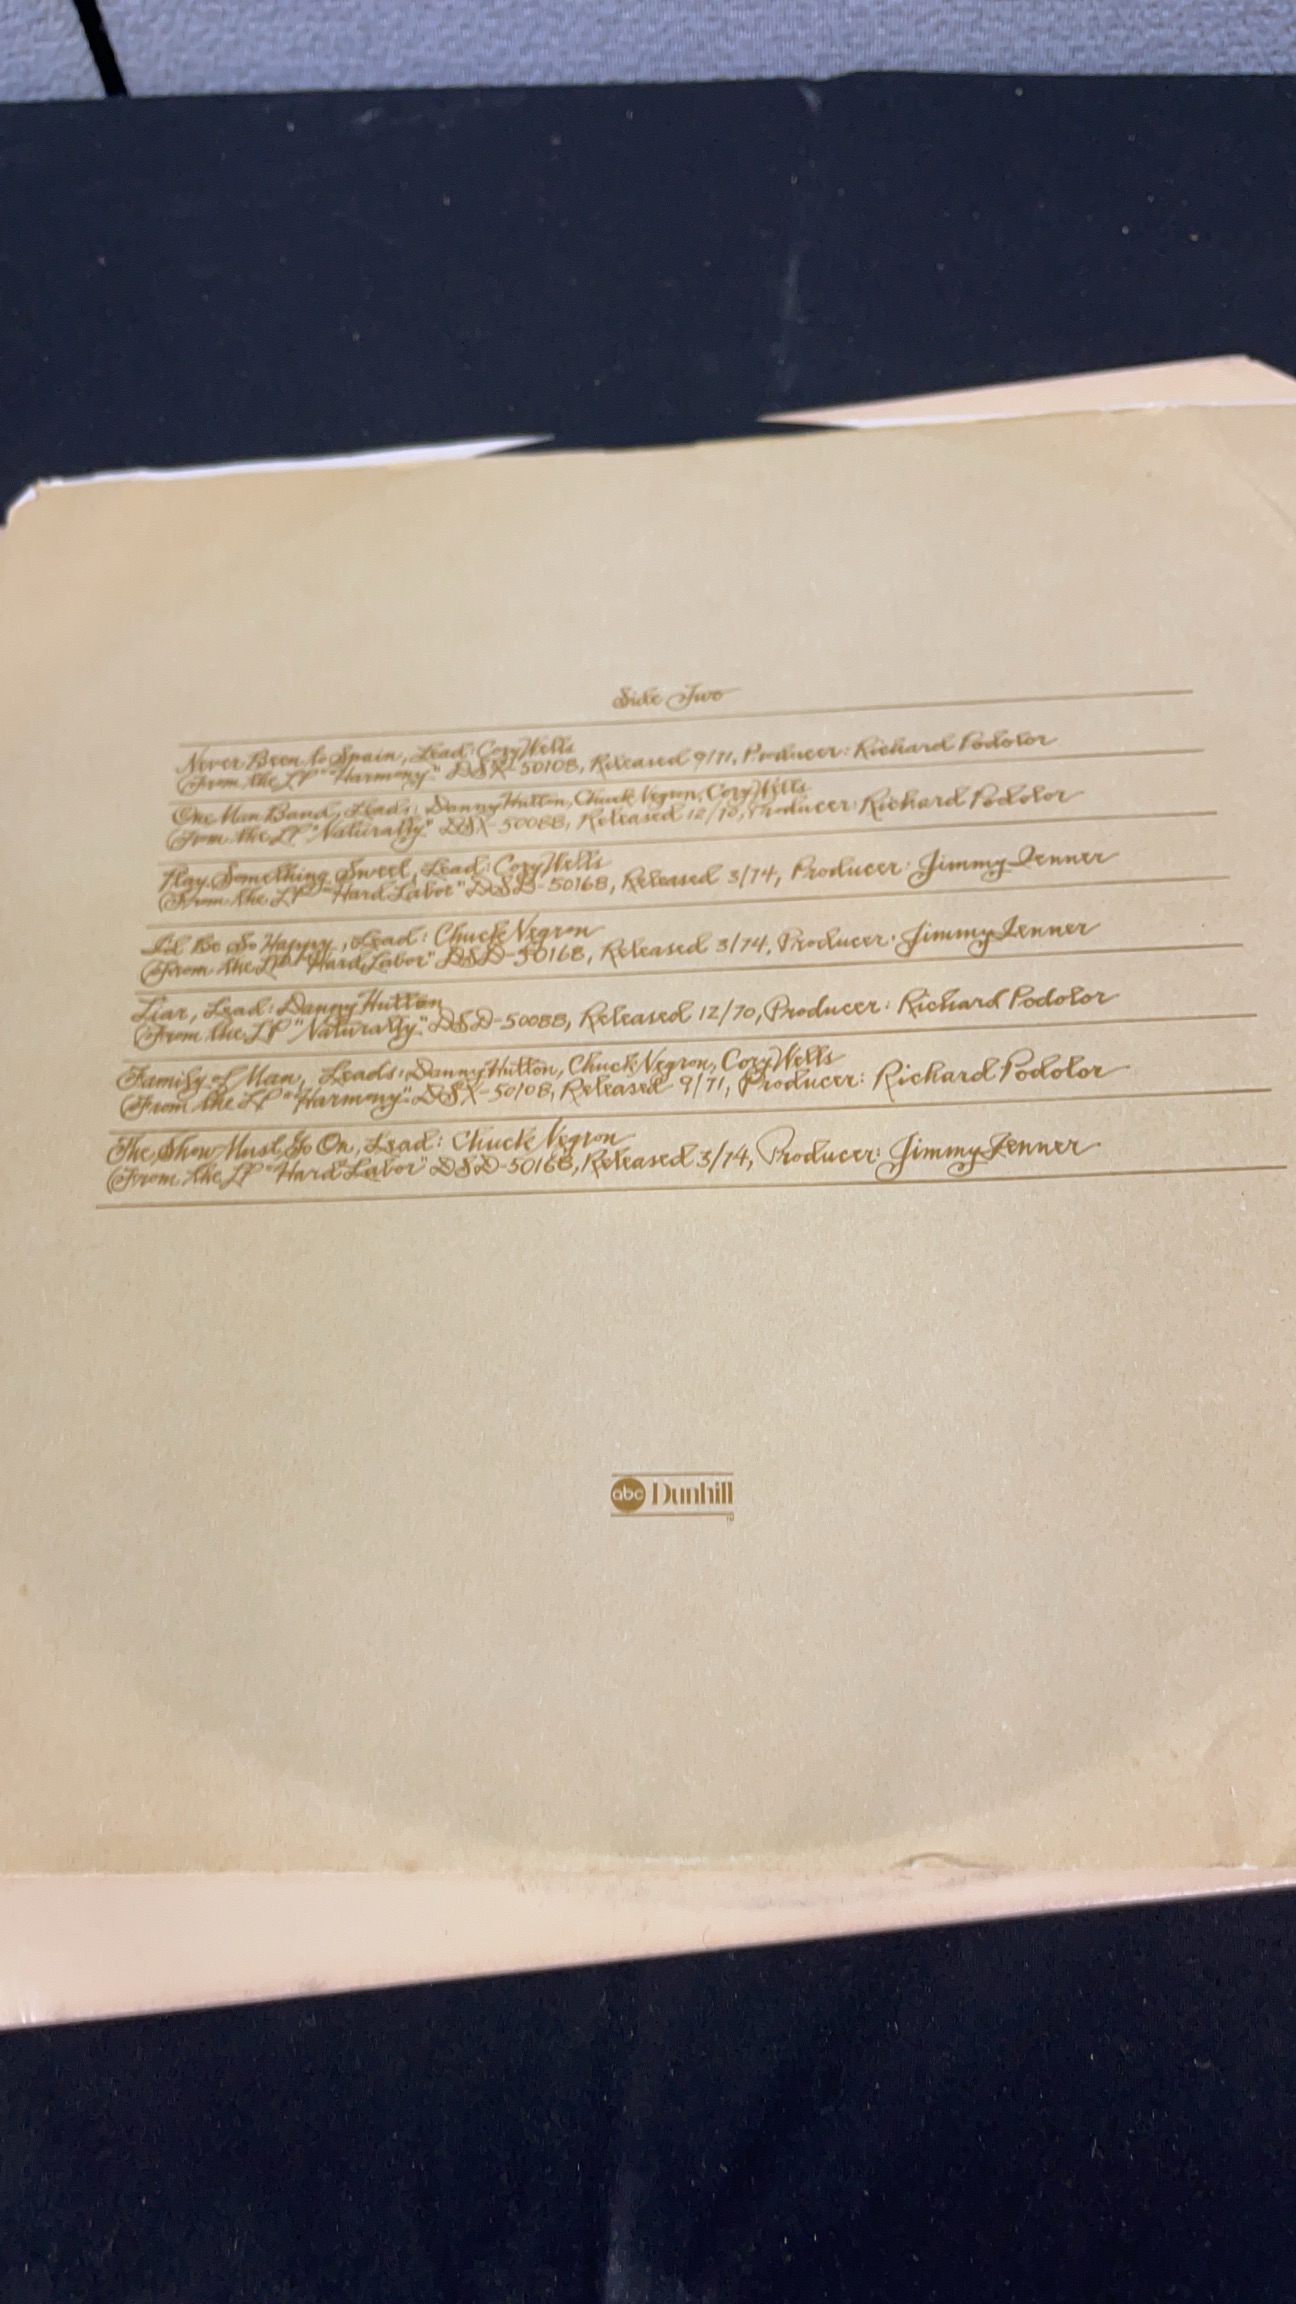 Side Two
Never Been to Spain, Lead: Cory Wells
(From the LP "Harmony" DSX-50108, Released 9/71, Producer: Richard Podolor
One Man Band, Leads: Danny Hutton, Chuck Negron, Cory Wells
(From the LP "Naturally" DSX-50088, Released 12/70, Producer: Richard Podolor
Play Something Sweet, Lead: Cory Wells
(From the LP "Hard Labor" DSD-50168, Released 3/74, Producer: Jimmy Ienner
I'd Be So Happy, Lead: Chuck Negron
(From the LP "Hard Labor" DSD-50168, Released 3/74, Producer: Jimmy Ienner
Liar, Lead: Danny Hutton
(From the LP "Naturally" DSD-50088, Released 12/70, Producer: Richard Podolor
Family of Man, Leads: Danny Hutton, Chuck Negron, Cory Wells
(From the LP "Harmony" DSX-50108, Released 9/71, Producer: Richard Podolor
The Show Must Go On, Lead: Chuck Negron
(From the LP "Hard Labor" DSD-50168, Released 3/74, Producer: Jimmy Ienner
abc Dunhill